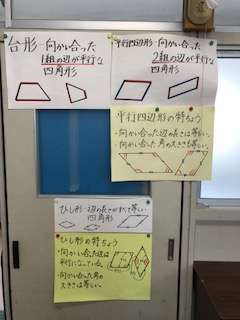 台形…向かい合った
1組の辺が平行な
四角形
平行四辺形…向かい合った
2組の辺が平行な
四角形
平行四辺形の特ちょう
・向かい合った辺の長さは等しい。
・向かい合った角の大きさも等しい。
ひし形…辺の長さがすべて等しい
ひし形の特ちょう
・向かい合った辺は
平行になっている。
・向かい合った角の
大きさは等しい。